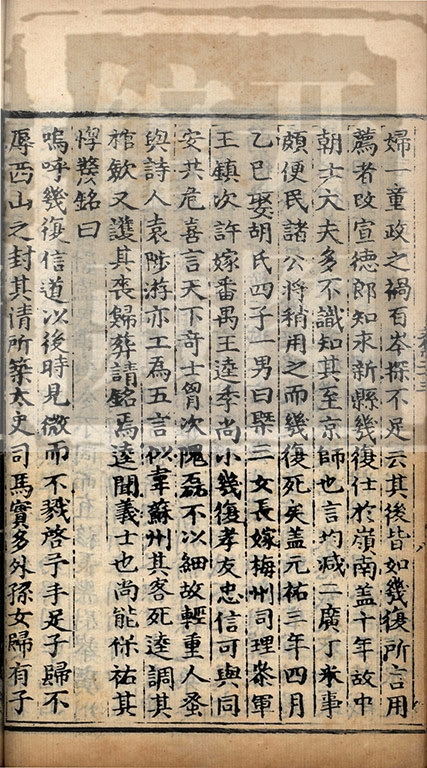 婦一童政之禍百岑探不足云其後皆如幾復所言用
薦者改宣德郎知求新縣幾復仕於嶺南盖十年故中
朝士大夫多不識知其至京師也言均减二廣丁米事
頗便民諸公將稍用之而幾復死矣盖元祐三年四月
乙巳娶胡氏四子一男曰槩三女長嫁梅州司理叅軍
王鎮次許嫁番禺王逵李尚小幾復孝友忠信可與同
安共危喜言天下奇士胷次隗磊不以細故輕重人蚤
與詩人袁陟游亦工爲五言似韋蘇州其客死逵調其
棺歛又護其喪歸葬請銘焉逵聞義士也尚能保祐其
惸嫠銘曰
嗚呼幾復信道以後時見微而不戮啓予手足子歸不
辱西山之封其清所築太史司馬實多外孫女歸有子